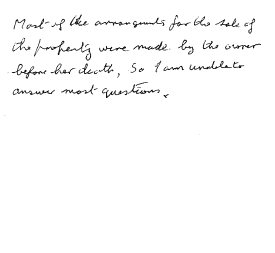 Most of the arrangements for the sale of
the property were made by the owner
before her death, so I am unable to
answer most questions.